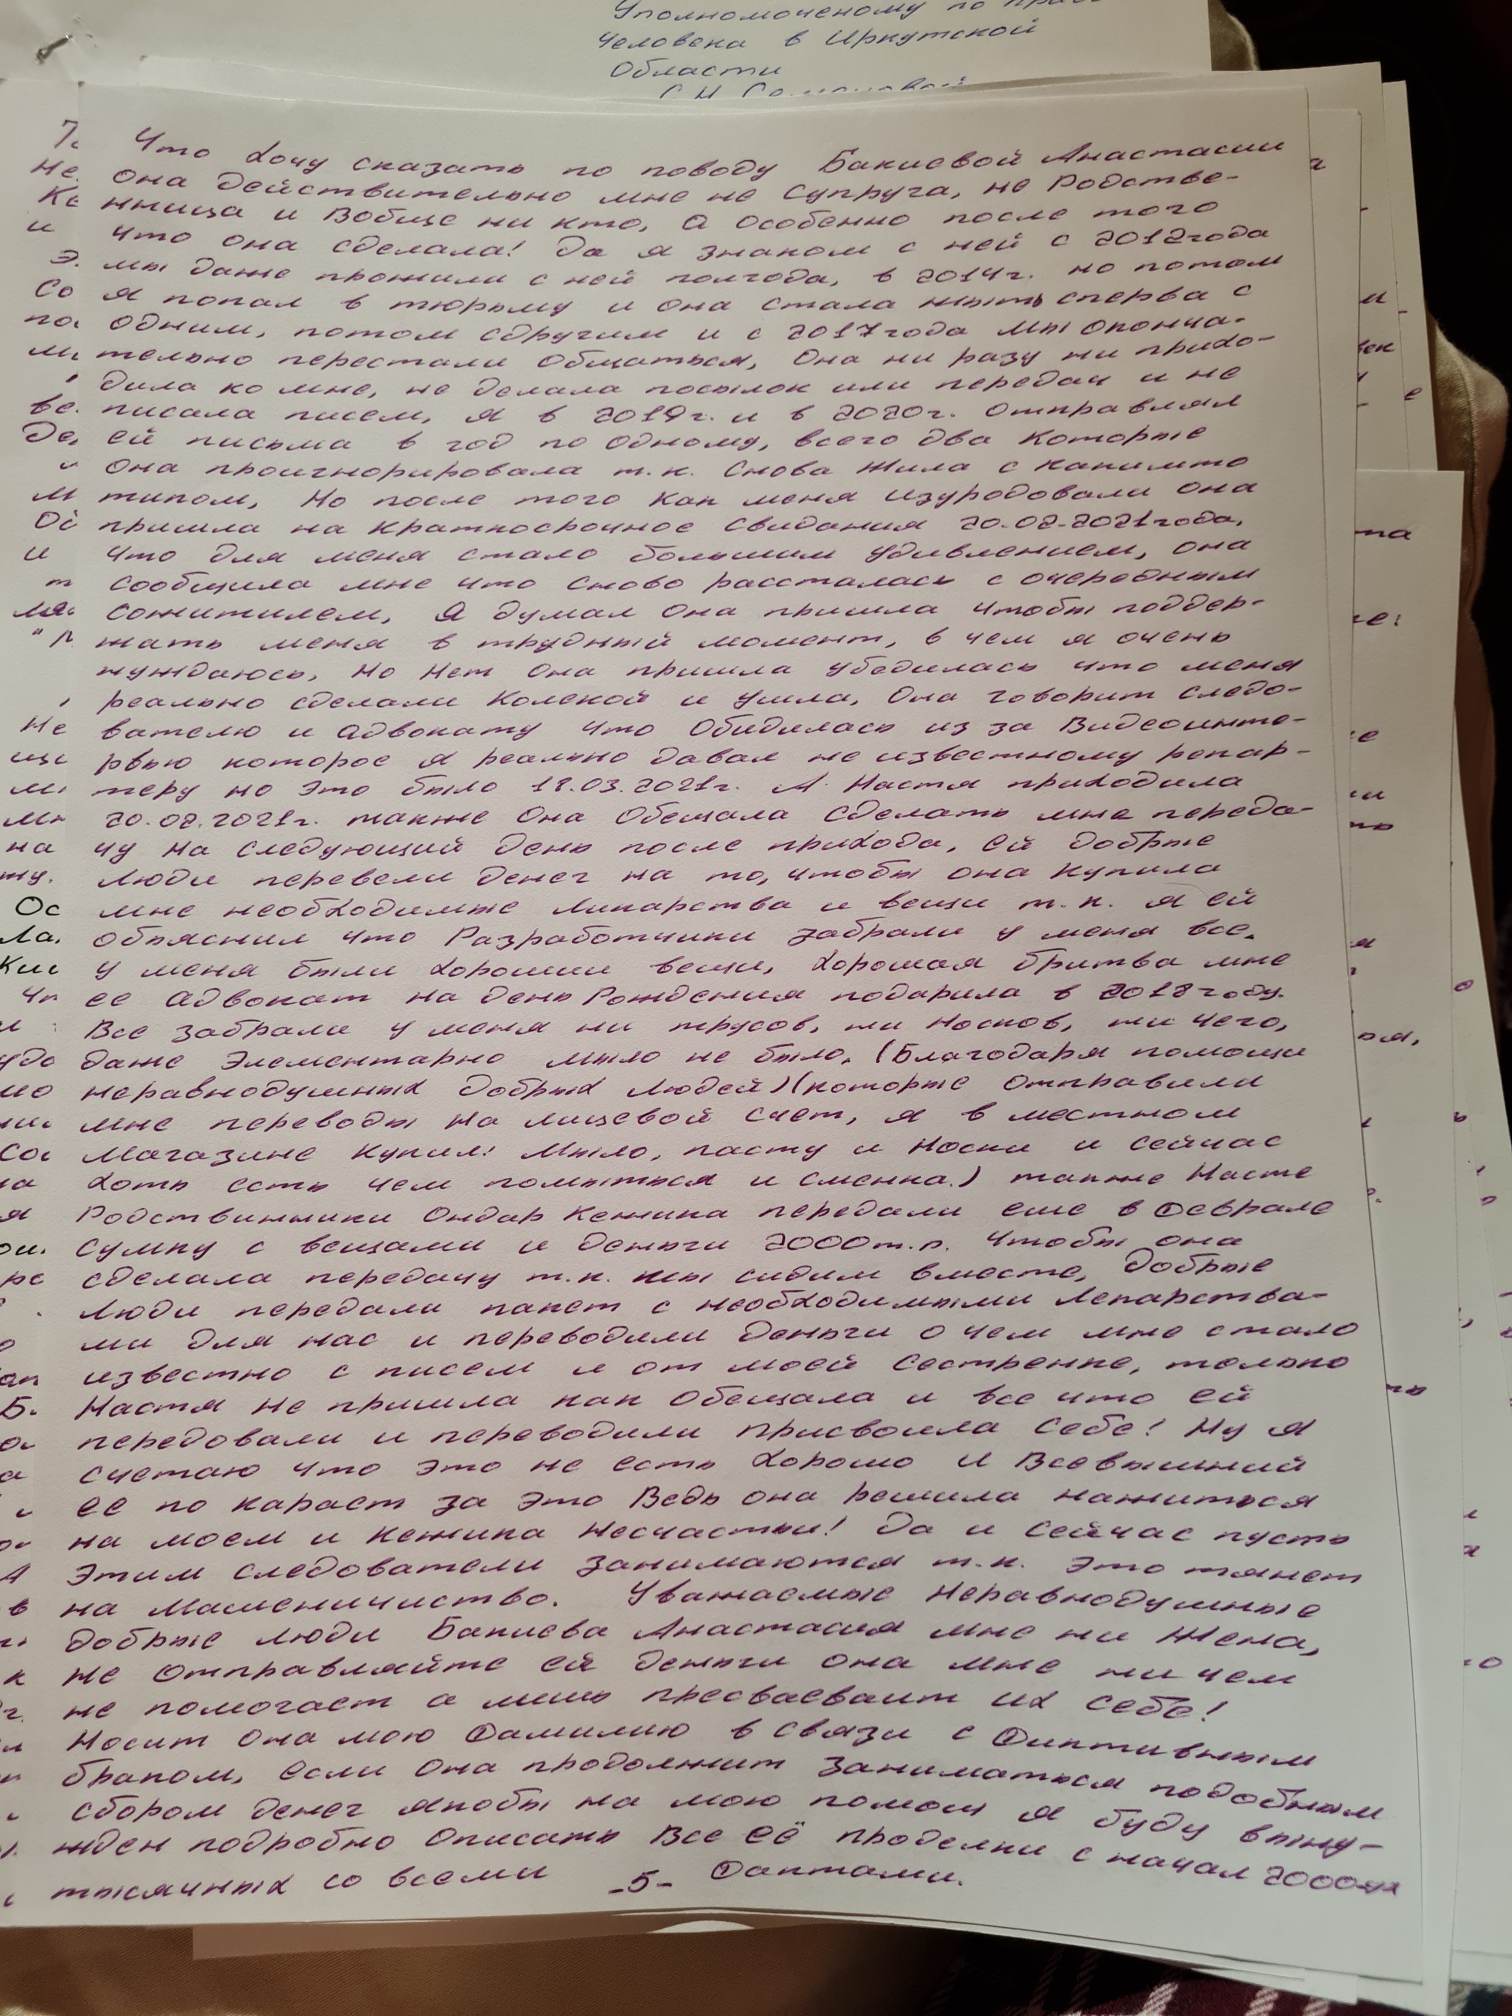 Уполномоченому по
Человека в Иркутской
Области
Что хочу сказать по поводу Бакиевой Анастасии
Она действительно мне не супруга, не Родстве-
нница и вобще ни кто, а особенно после того
что она сделала! Да я знаком с ней с 2012года
мы даже прожили с ней полгода, в 2014г. но потом
я попал в тюрьму и она стала жыть сперва с
одним, потом сдругим и с 2017года мы оконча-
тельно перестали общаться, Она ни разу ни прихо-
дила ко мне, не делала посылок или передач и не
писала писем, я в 2019г. и в 2020г. отправлял
ей письма в год по одному, всего два которые
она проигнорировала т.к. снова жила с какимто
типом, Но после того как меня изуродовали она
пришла на краткосрочное свидания 20.02.2021года,
что для меня стало большим удивлением, она
сообщила мне что снова рассталась с очередным
сожителем, Я думал она пришла чтобы поддер-
жать меня в трудный момент, в чем я очень
нуждаюсь, Но нет она пришла убедилась что меня
реально сделали Колекой и ушла, Она говорит следо-
вателю и адвокату что обидилась из за Видеоинте-
рвью которое я реально давал не известному репар-
теру но это было 18.03.2021г. А Настя приходила
20.02.2021г. также она обещала сделать мне переда-
чу на следующий день после прихода, ей добрые
люди перевели денег на то, чтобы она купила
мне необходимые ликарства и вещи т.к. я ей
объяснил что Разработчики забрали у меня все.
у меня были хорошии вещи, хорошая бритва мне
ее адвокат на день Рождения подарила в 2018году.
Все забрали у меня ни трусов, ни носков, ни чего,
даже элементарно мыло не было. (Благодаря помощи
неравнодушных добрых людей)(которые отправили
мне переводы на лицевой счет, я в местном
магазине купил: мыло, пасту и носки и сейчас
хоть есть чем помыться и сменка.) также Насте
Родствинники Ондар Кежика передали еще в феврале
сумку с вещами и деньги 2000т.р. чтобы она
сделала передачу т.к. мы сидим вместе, добрые
люди передали пакет с необходимыми лекарства-
ми для нас и переводили деньги о чем мне стало
известно с писем и от моей сестренке, только
Настя не пришла как обещала и все что ей
передовали и переводили присвоила себе! Ну я
счетаю что это не есть хорошо и Всевышний
ее по караст за это Ведь она решила нажиться
на моем и Кежика несчастьи! Да и сейчас пусть
этим следователи занимаются т.к. это тянет
на Машеничиство. Уважаемые неравнодушные
добрые люди Бакиева Анастасия мне ни жена,
не отправляйте ей деньги она мне ни чем
не помогает а лишь пресваеваит их себе!
Носит она мою фамилию в связи с фиктивным
браком, если она продолжит заниматься подобным
сбором денег якобы на мою помощ я буду выну-
жден подробно описать все её проделки с начал 2000-ых
тысячных со всеми фактами.
-5-